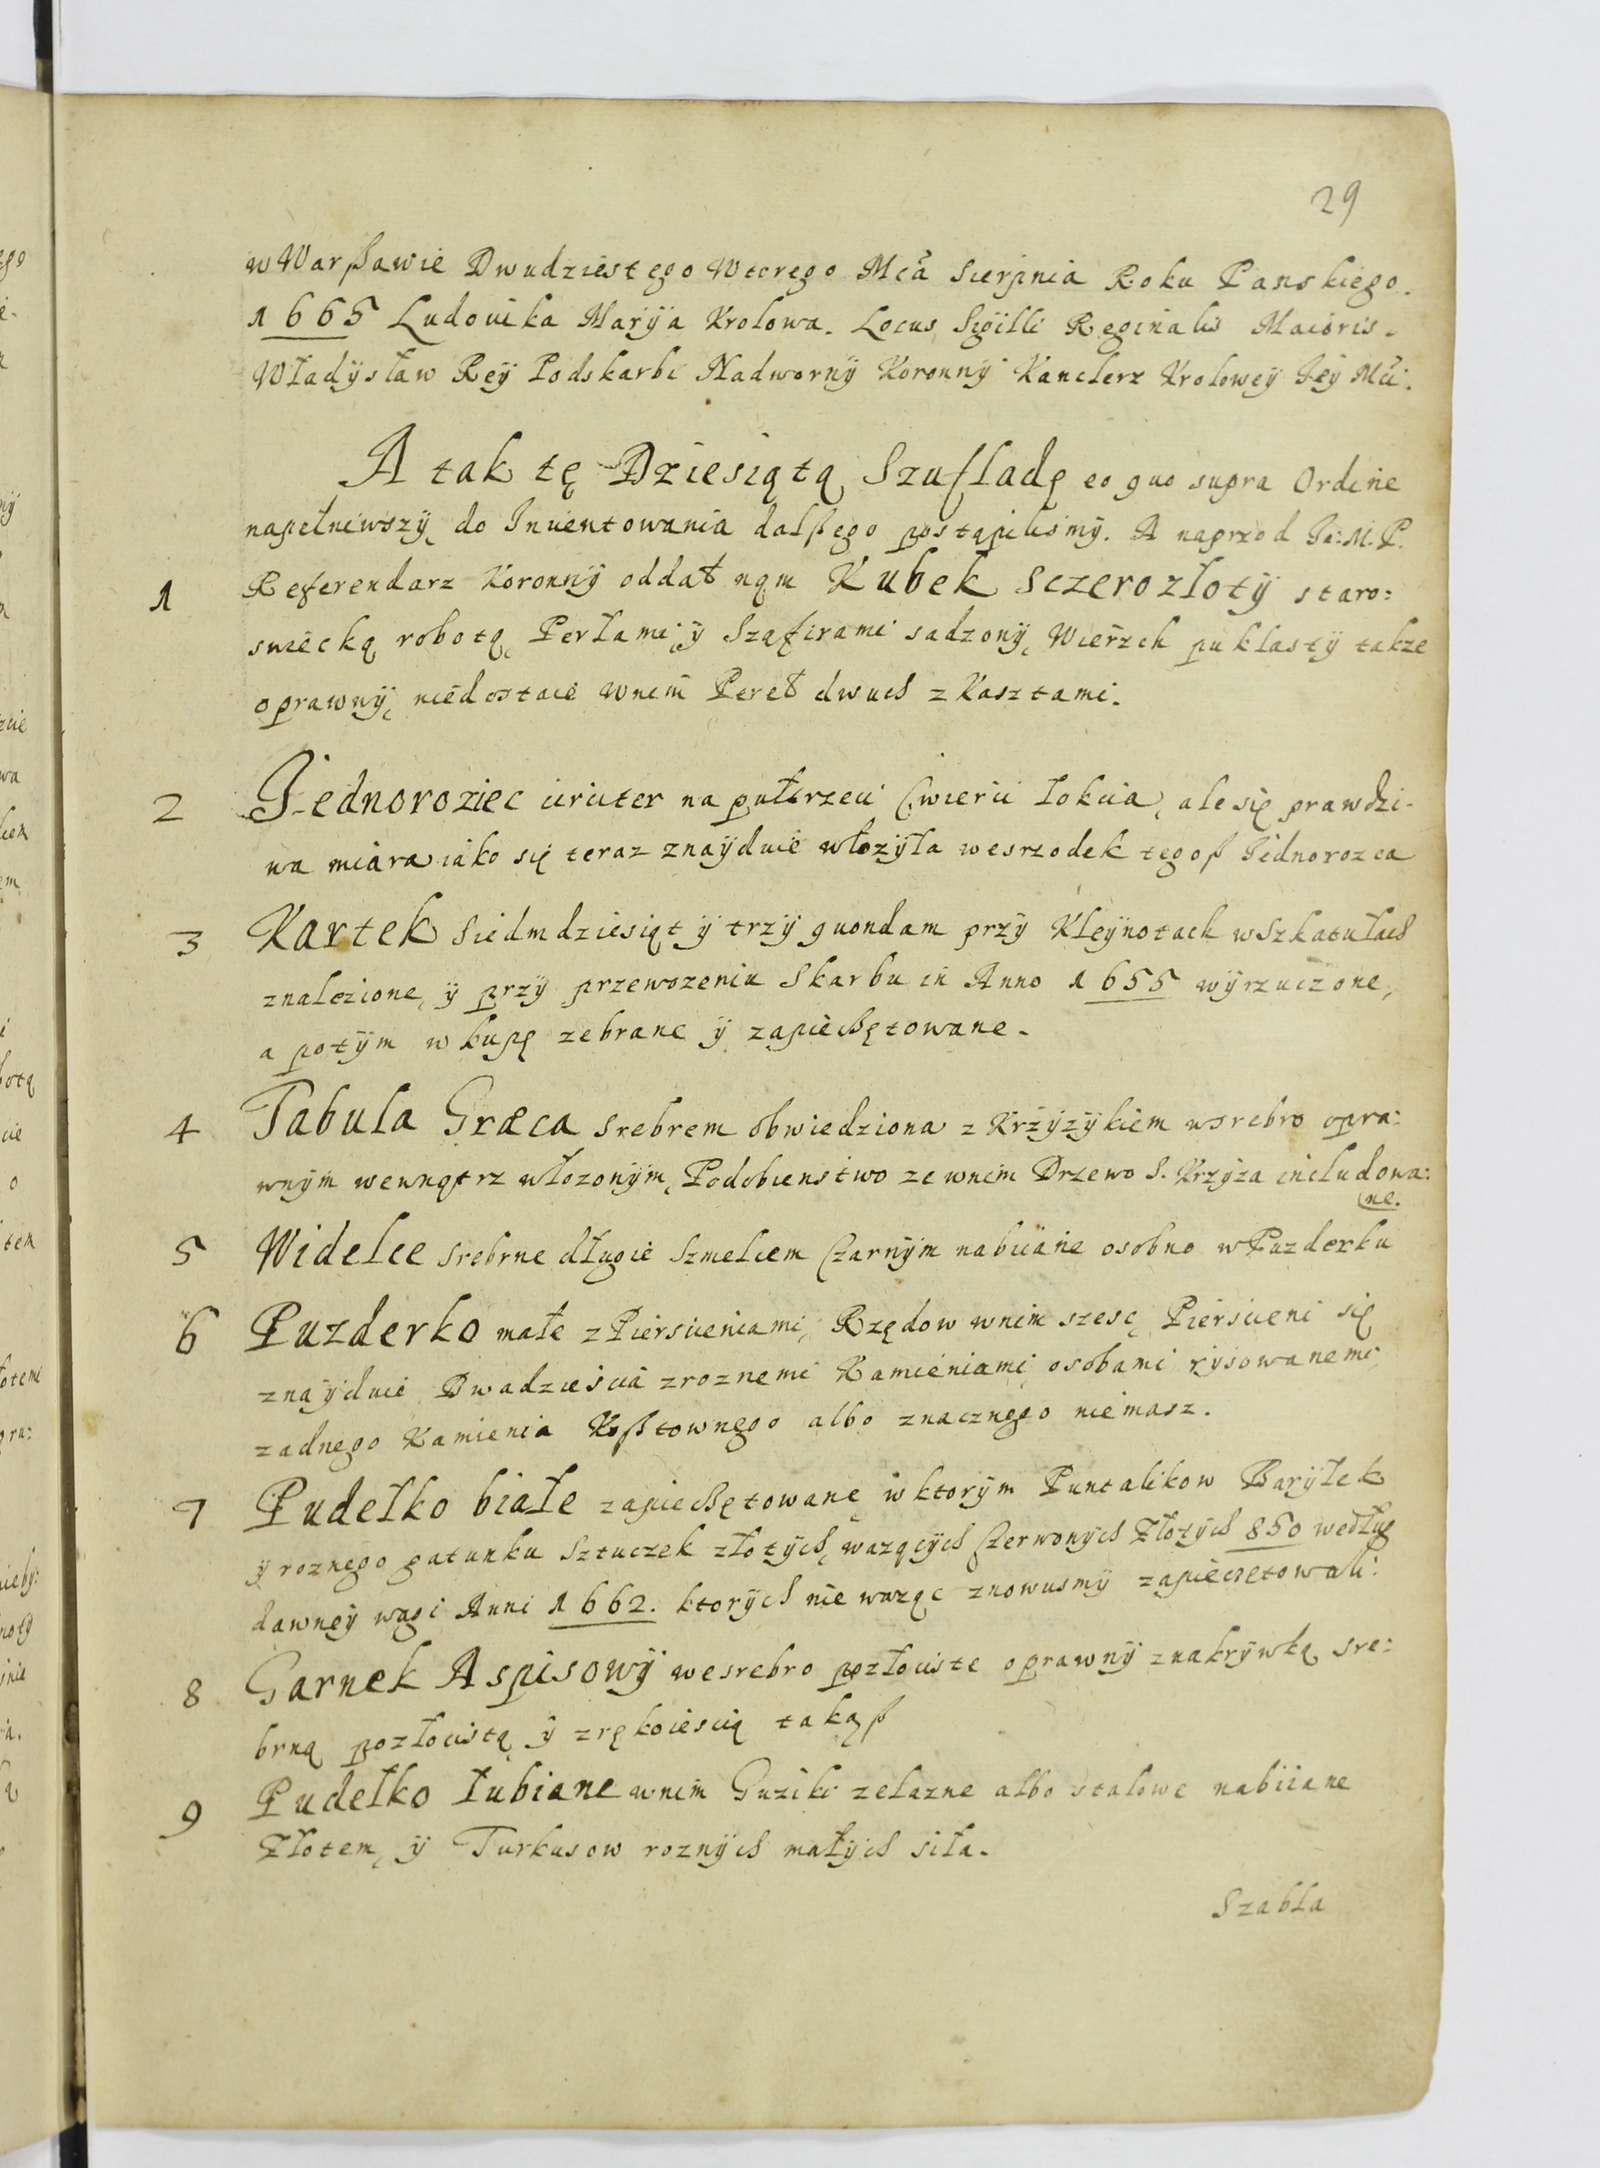 29
w Warßawie Dwudziestego Wtorego Mca Sierpnia Roku Panskiego.
1665 Ludouika Maryja Krolowa. Locus Sigilli Reginalis Maioris.
Władysław Rey Podskarbi Nadworny Koronny Kanclerz Krolowey Jey Mci.
A tak tę Dziesiątą Szufladę eo quo supra Ordine
napełniwszy, do Inuentowania dalßego postąpilismy. A naprzod Je: M. P.
1 Referendarz Koronny oddał nąm Kubek sczerozłoty staro:
swiecką robotą, Perłami, y Szafirami sadzony, Wierzch puklasty takze
oprawny, niedostaie wnim Pereł dwuch z Kasztami.
2 Jednoroziec circiter na pułtrzeci Cwierci łokcia, ale się prawdzi-
wa miara iako się teraz znayduie włozyła wesrzodek tegoß Jednorozca
3 Kartek Siedmdziesiąt y trzy quondam przy Kleynotach w Szkatułach
znalezione, y przy przewozeniu Skarbu in Anno 1655 wyrzuczone,
a potym w kupę zebrane y zapiechętowane.
4 Tabula Græca srebrem obwiedziona z Krzyzykiem w srebro opra:
wnym wewnątrz włozonym, Podobienstwo ze wnim Drzewo S. Krzyza includowa:
ne.
5 Widelce srebrne długie Szmelcem Czarnym nabiiane osobno w Puzderku
6 Puzderko małe z Piersicieniami, Rzędow wnim szesc, Piersicieni się
znayduie Dwadziescia z roznemi Kamieniami, osobami rysowanemi
zadnego Kamienia Koßtownego albo znacznego niemasz.
7 Pudełko białe zapiechętowane w ktorym Puntalikow Baryłek
y roznego gatunku Sztuczek złotych, wazących Czerwonych Złotych 850 według
dawney wagi Anni 1662. ktorych nie waząc znowusmy zapieczetowali.
8 Garnek Aspisowy we srebro pozłociste oprawny z nakrywką sre:
brną pozłocistą, y z rękoiescią takąß
9 Pudełko łubiane wnim Guziki zelazne albo stalowe nabiiane
Złotem, y Turkusow roznych małych siła.
Szabla